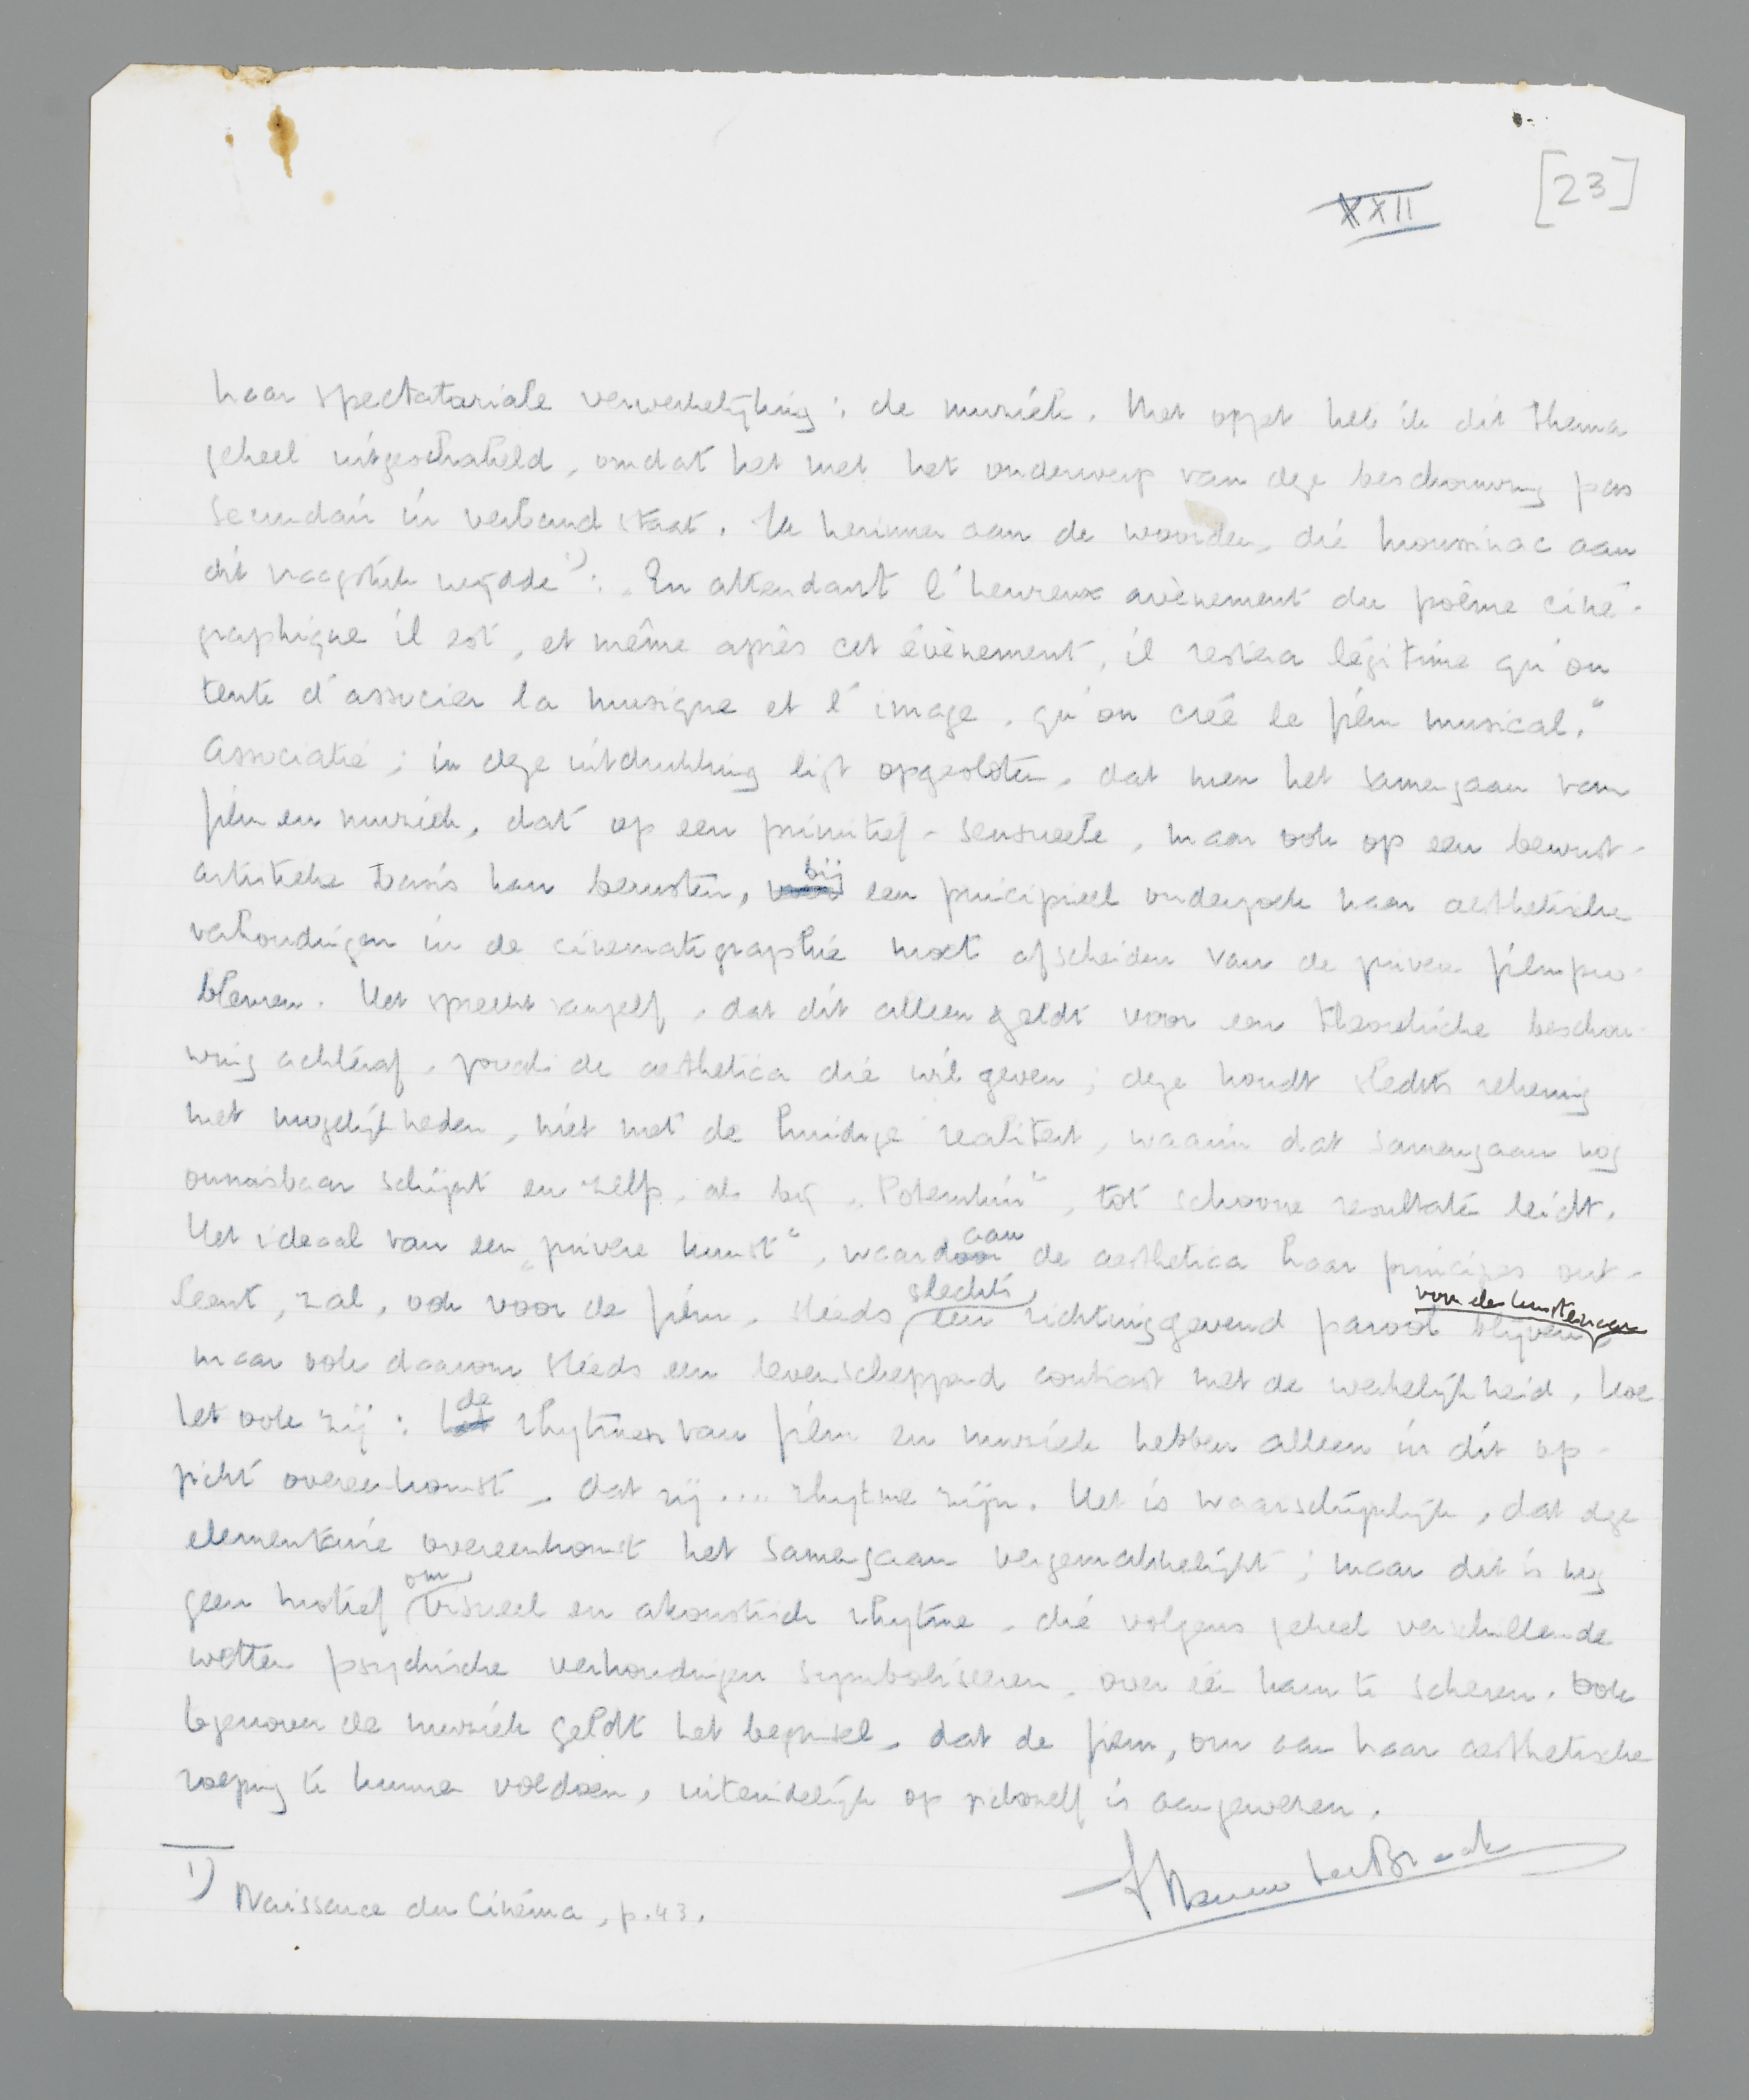 XXII
[23]
haar spectatoriale verwerkelijking: de muziek. Met opzet heb ik dit thema
geheel uitgeschakeld, omdat het met het onderwerp van deze beschouwing pas
secundair in verband staat. Ik herinner aan de woorden, die Moussinac aan
dit vraagstuk wijdde 1): „En attendant l'heureux avènement du poème ciné-
graphique il est, et même après cet évènement, il restera légitime qu'on
tente d'associer la musique et l'image, qu'on créé le film musical."
Associatie; in deze uitdrukking ligt opgesloten, dat men het samengaan van
film en muziek, dat op een primitief-sensueele, maar ook op een bewust-
artistieke basis kan berusten, voor bij een principieel onderzoek naar aesthetische
verhoudingen in de cinematographie moet afscheiden van de zuivere filmpro-
blemen. Het spreekt vanzelf, dat dit alleen geldt voor een theoretische beschou-
wing achteraf, zooals de aesthetica die wil geven; deze houdt slechts rekening
met mogelijkheden, niet met de huidige realiteit, waarin dat samengaan nog
onmisbaar schijnt en zelfs, als bij „Potemkin", tot schoone resultaten leidt.
Het ideaal van een „zuivere kunst", waardoor aan de aesthetica haar principes ont-
leent, zal, ook voor de film, steeds slechts een richtinggevend parool blijven voor den kunstenaar,
maar ook daarom steeds een levenscheppend contrast met de werkelijkheid. Hoe
het ook zij: het de rhytmen van film en muziek hebben alleen in dit op-
zicht overeenkomst, dat zij .... rhytme zijn. Het is waarschijnlijk, dat deze
elementaire overeenkomst het samengaan vergemakkelijkt; maar dit is nog
geen motief om visueel en akoustisch rhytme, die volgens geheel verschillende
wetten psychische verhoudingen symboliseeren, over één kam te scheren. Ook
tegenover de muziek geldt het beginsel, dat de film, om aan haar aesthetische
roeping te kunnen voldoen, uiteindelijk op zichzelf is aangewezen.
Menno ter Braak
1) Naissance du Cinéma, p. 43.